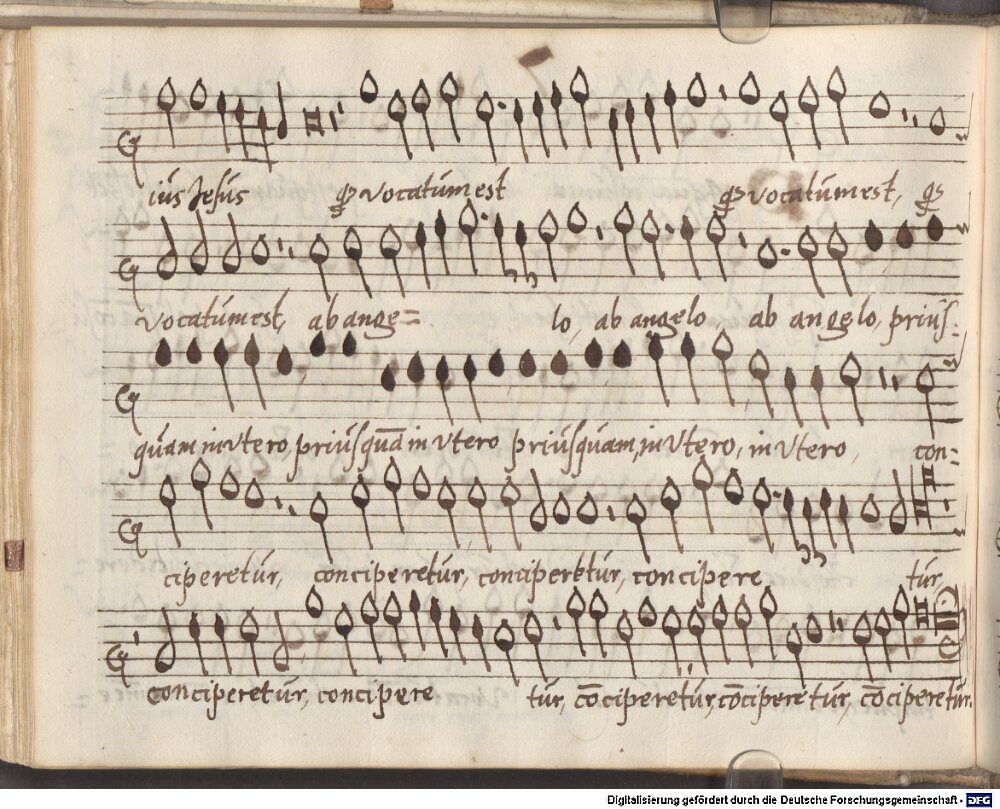 iús Jesús qȝ vocatúm est qȝ vocatúm est, qȝ
vocatúm est, ab ange= lo, ab angelo, ab angelo, priúſ:
quam, in vtero, priúſquā in vtero priúſquam, in vtero, in vtero, con=
ciperetúr, conciperetúr, conciperetúr, concipere túr,
conciperetúr, concipere túr, cōciperetúr, cōciperetúr, cōciperetúr.
Digitalisierung gefördert durch die Deutsche Forschungsgemeinschaft - DFG